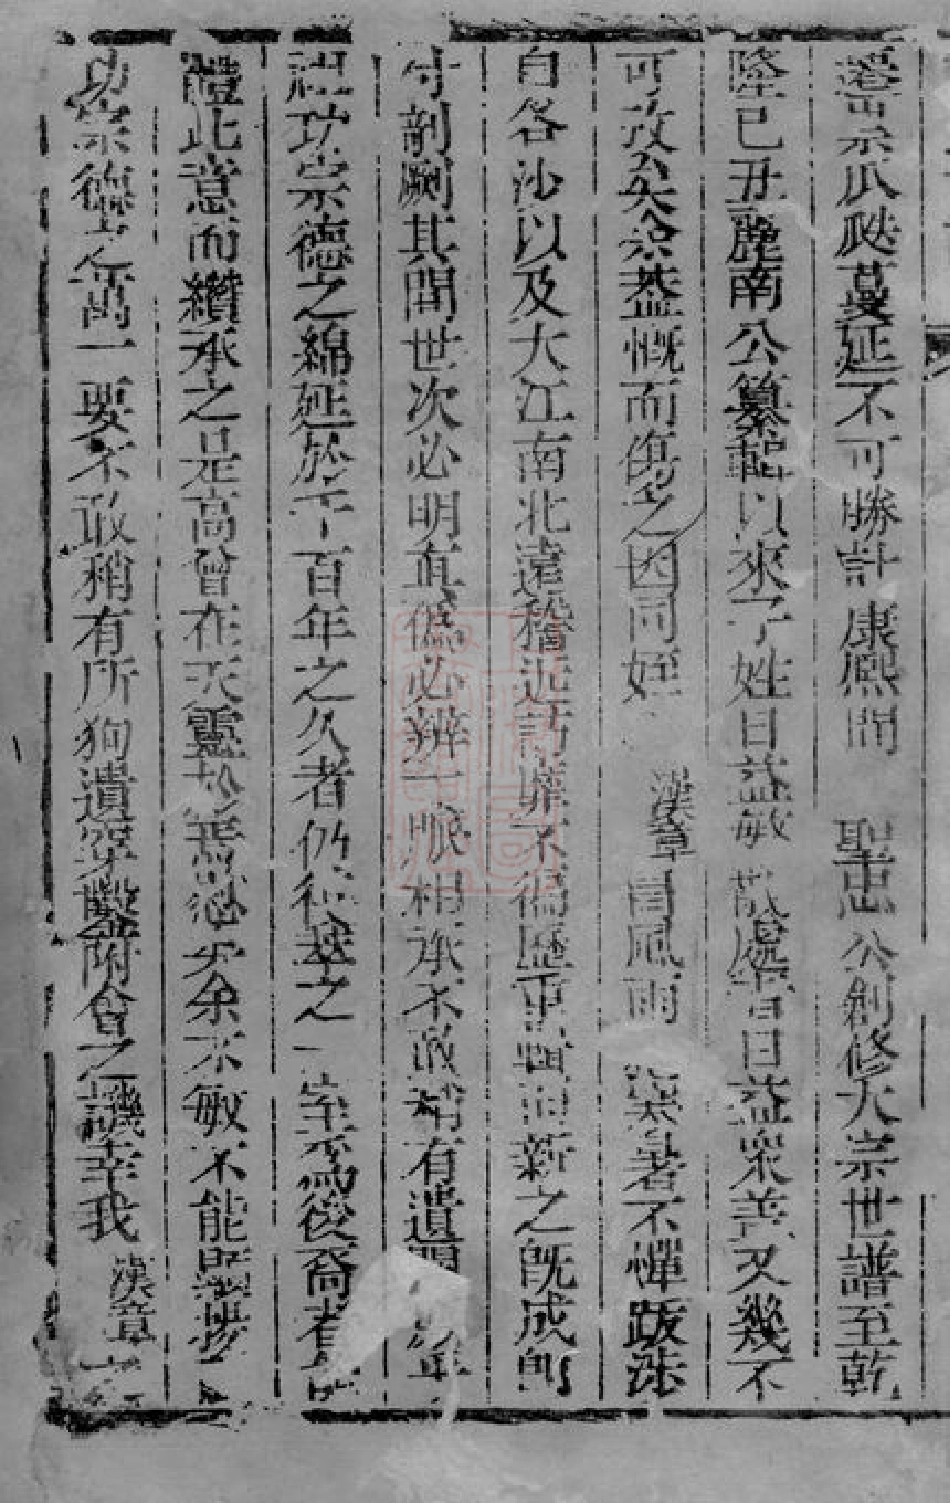 遷出示瓜瓞蔓延不可勝計康熙間 聖忠公創修大宗世譜至乾
隆己丑麗南公纂輯以來子姓日益蕃散處者日益衆善又幾不
可攷矣余葢慨而傷之因同姪 漢章冒風雨 寒暑不憚跋涉
自各沙以及大江南北遠稽近訪靡不徧歷重輯而新之旣成卽
付剞劂其間世次必明眞僞必辨一脈相承不敢稍有遺 年
祖功宗德之綿延於千百年之久者仍得萃之一室焉後裔者
體此意而纘承之是高曾在天靈 無 矣余不敏不能 
功宗德之萬一要不敢稍有所狥遺穿鑿附會之譏幸我 漢章